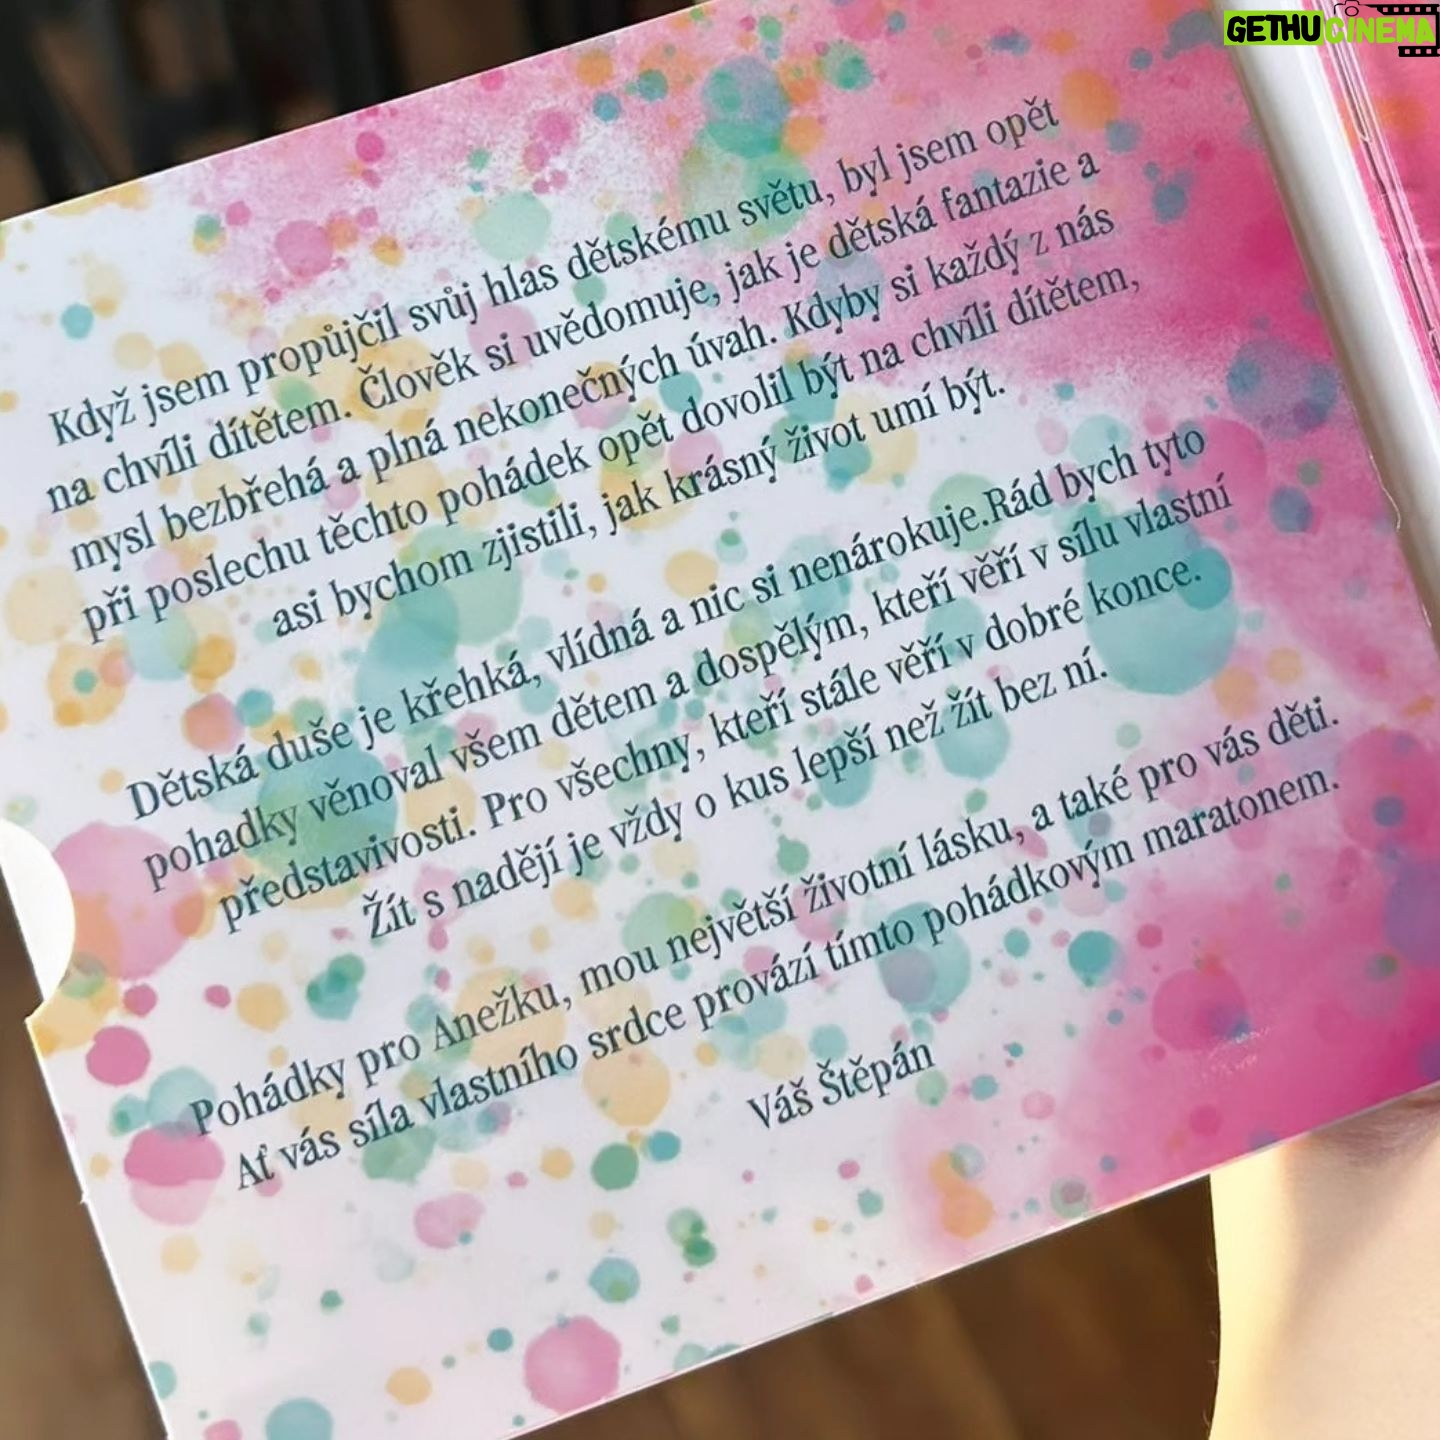 GETHUCINEMA
Když jsem propůjčil svůj hlas dětskému světu, byl jsem opět
na chvíli dítětem. Člověk si uvědomuje, jak je dětská fantazie a
mysl bezbřehá a plná nekonečných úvah. Kdyby si každý z nás
při poslechu těchto pohádek opět dovolil být na chvíli dítětem,
asi bychom zjistili, jak krásný život umí být.
Dětská duše je křehká, vlídná a nic si nenárokuje.Rád bych tyto
pohadky věnoval všem dětem a dospělým, kteří věří v sílu vlastní
představivosti. Pro všechny, kteří stále věří v dobré konce.
Žít s nadějí je vždy o kus lepší než žít bez ní.
Pohádky pro Anežku, mou největší životní lásku, a také pro vás děti.
Ať vás síla vlastního srdce provází tímto pohádkovým maratonem.
Váš Štěpán